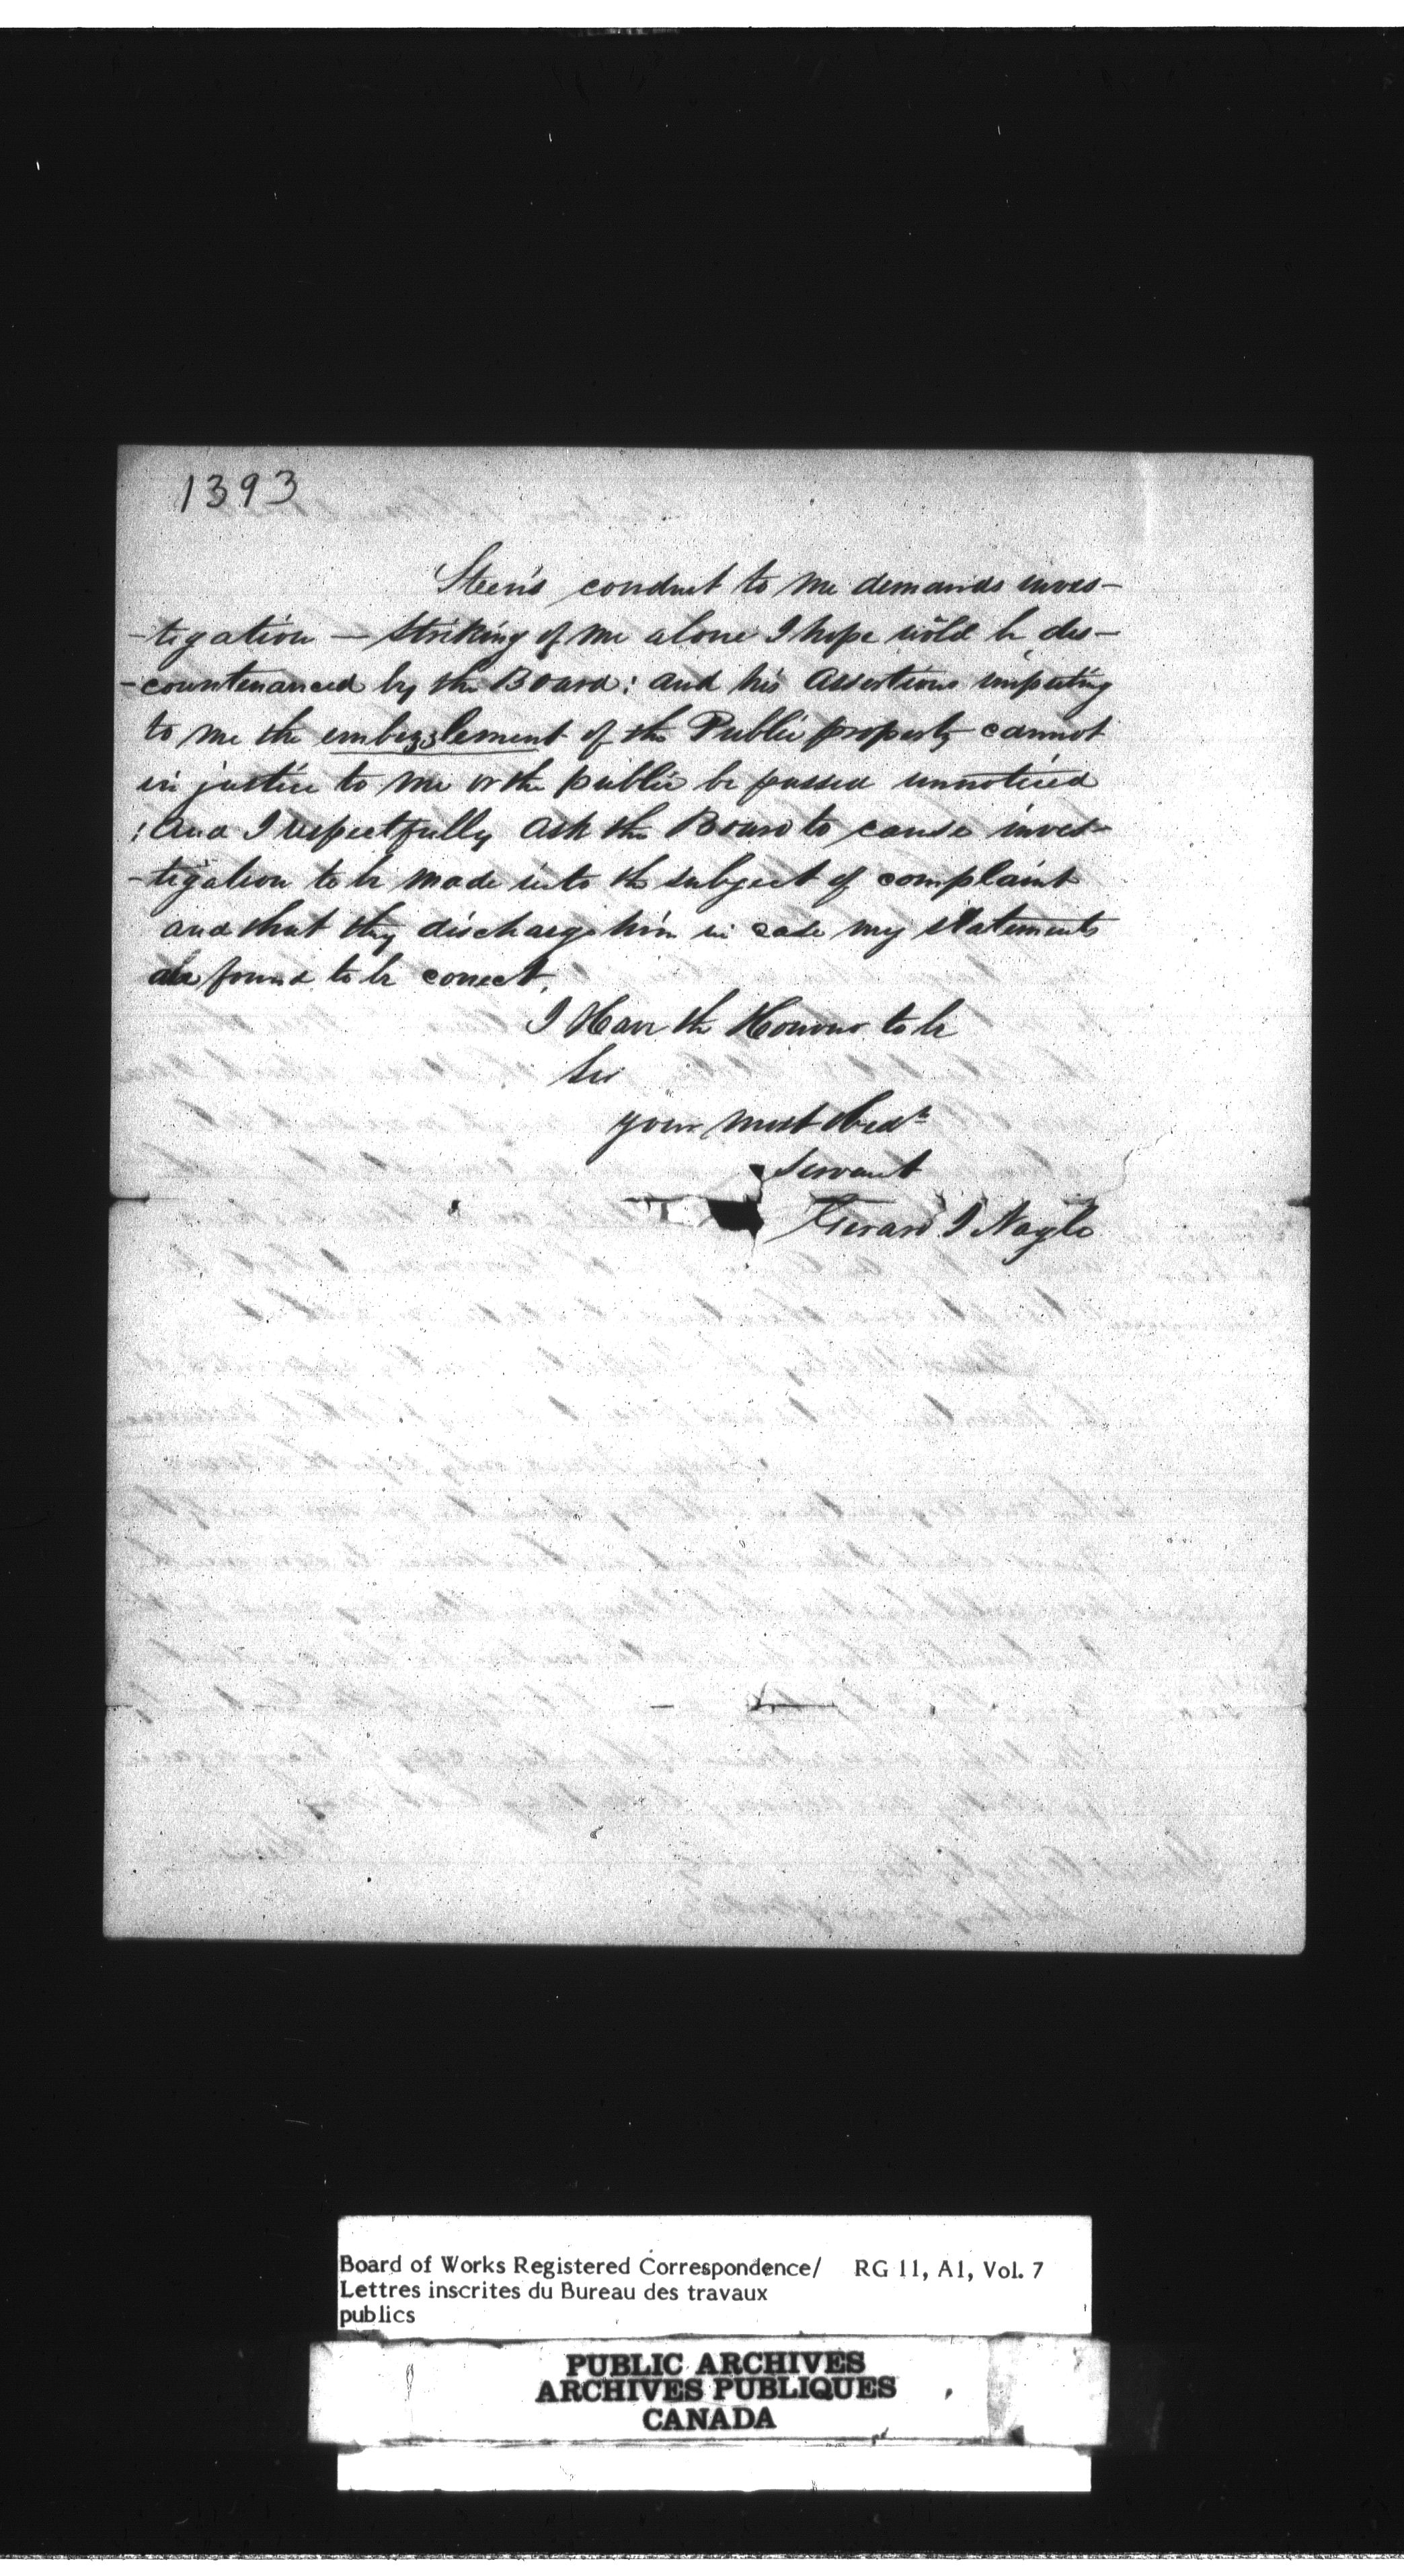 1393
Steen's conduct to me demands inves-
-tigation — Striking of me alone I hope wold be dis-
-countenanced by the Board: and his assertions imputing
to me the embezzlement of the Public property cannot
in justice to me or the public be passed unnoticed
: And I respectfully ask the Board to cause inves-
-tigation to be made into the subject of complaint
and that they discharge him in case my statements
are found to be correct.
I Have the Honour to be
Sir
your most obedt
Servant
Gerard J Nagle
Board of Works Registered Correspondence/ RG 11, A1, Vol. 7
Lettres inscrites du Bureau des travaux
publics
PUBLIC ARCHIVES
ARCHIVES PUBLIQUES
CANADA